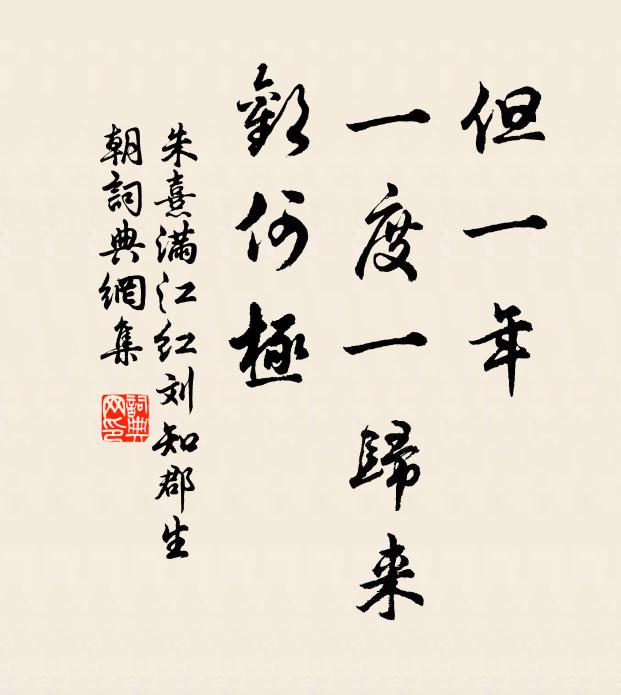 但一年
一度一歸来
歡何極
朱熹满江红刘知郡生
朝詞典網集
詞典
网印